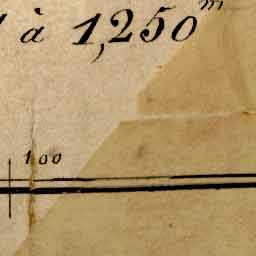 à 1,250 m
100